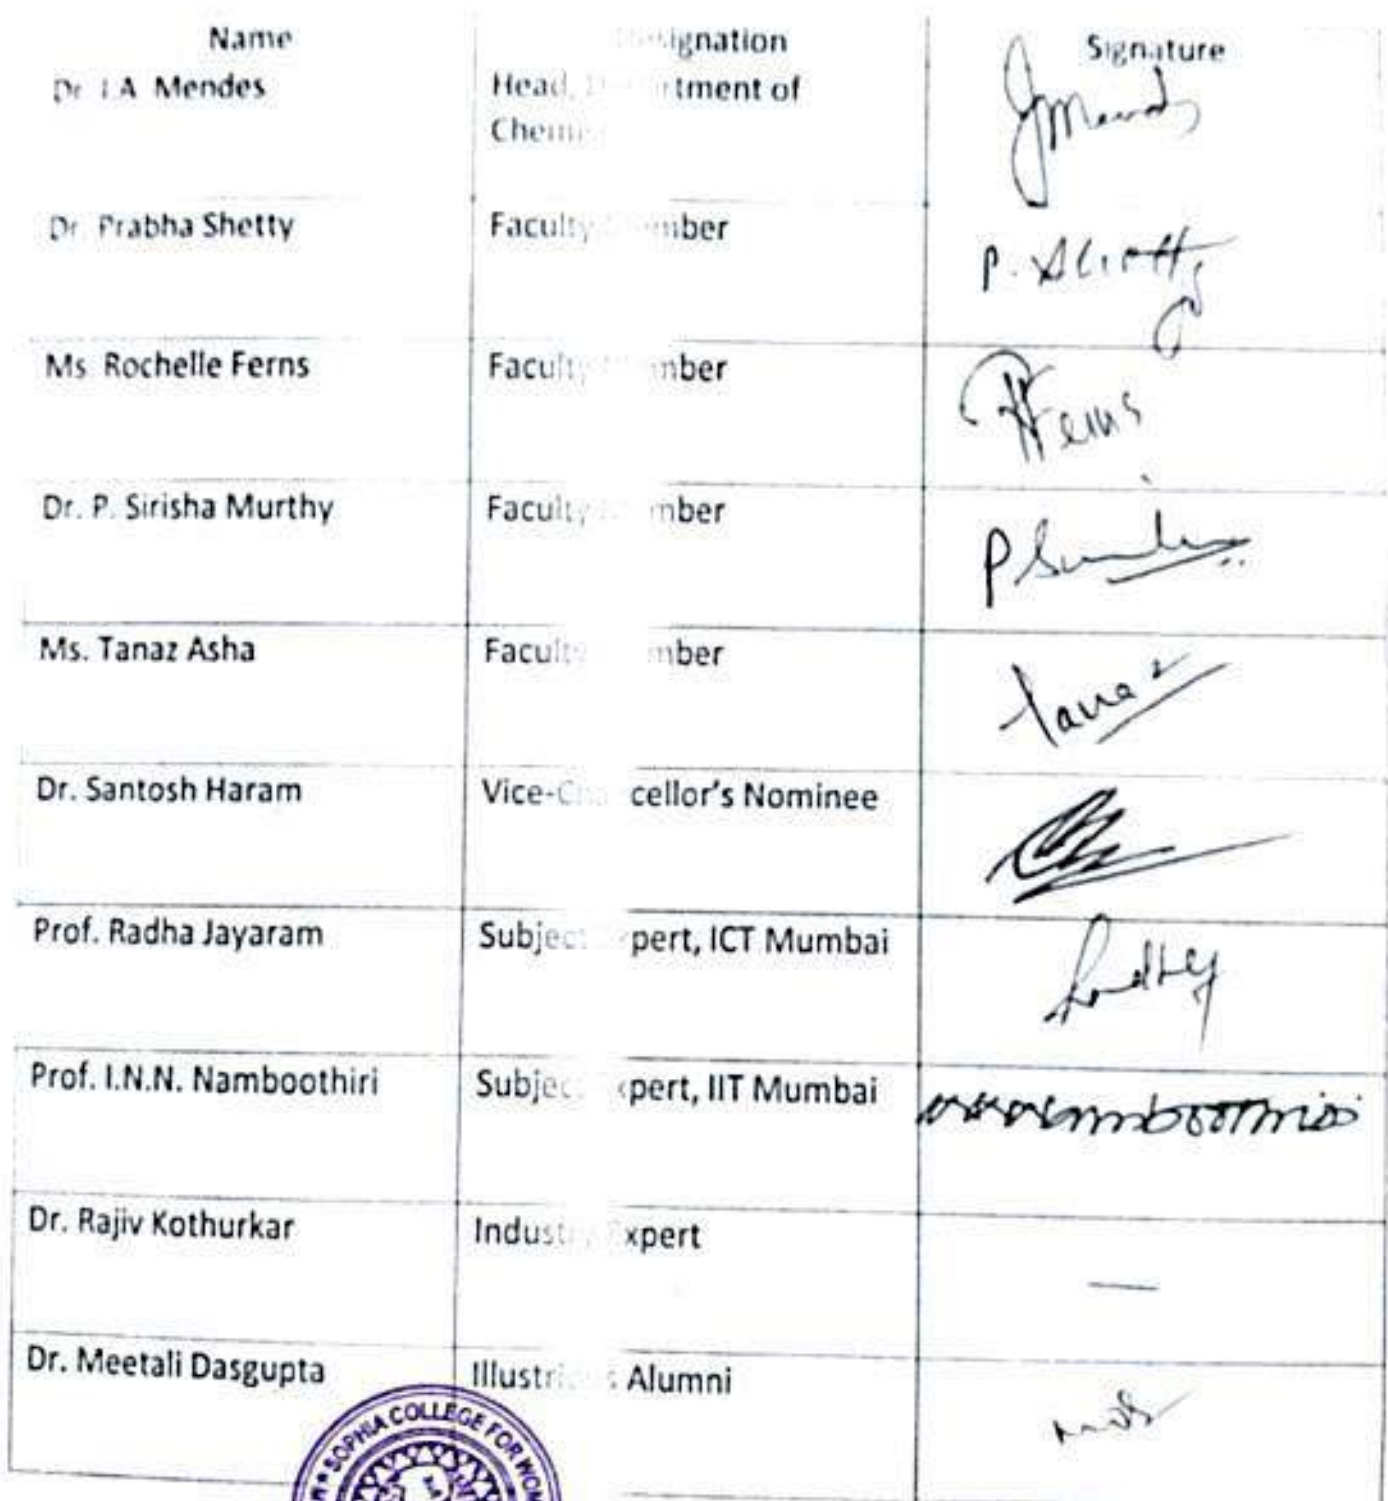 Name Designation Signature
Dr. I.A. Mendes Head, Department of
Chemistry
Dr. Prabha Shetty Faculty Member P. Shetty
Ms. Rochelle Ferns Faculty Member RFerns
Dr. P. Sirisha Murthy Faculty Member
Ms. Tanaz Asha Faculty Member Tanaz
Dr. Santosh Haram Vice-Chancellor's Nominee
Prof. Radha Jayaram Subject Expert, ICT Mumbai
Prof. I.N.N. Namboothiri Subject Expert, IIT Mumbai
Dr. Rajiv Kothurkar Industry Expert —
Dr. Meetali Dasgupta Illustrious Alumni
SOPHIA COLLEGE FOR